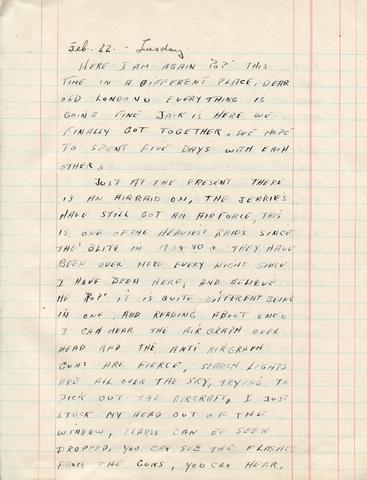 Feb. 22. - Tuesday
HERE I AM AGAIN "POP" THIS
TIME IN A DIFFERENT PLACE, DEAR
OLD LONDON. EVERYTHING IS
GOING FINE JACK IS HERE WE
FINALLY GOT TOGETHER. WE HOPE
TO SPENT FIVE DAYS WITH EACH
OTHER.
JUST AT THE PRESENT THERE
IS AN AIRRAID ON, THE JERRIES
HAVE STILL GOT AN AIRFORCE, THIS
IS ONE OF THE HEAVIEST RAIDS SINCE
THE BLITZ IN 1939-40. THEY HAVE
BEEN OVER HERE EVERY NIGHT SINCE
I HAVE BEEN HERE, AND BELIEVE
ME "POP" IT IS QUITE DIFFERENT BEING
IN ONE, AND READING ABOUT ONE.
I CAN HEAR THE AIRGRAPH OVER
HEAD AND THE ANTI AIRGRAPH
GUNS ARE FIERCE, SEARCH LIGHTS
ARE ALL OVER THE SKY, TRYING TO
PICK OUT THE AIRCRAFT, I JUST
STUCK MY HEAD OUT OF THE
WINDOW, FLARES CAN BE SEEN
DROPPED, YOU CAN SEE THE FLASHES
FROM THE GUNS, YOU CAN HEAR,